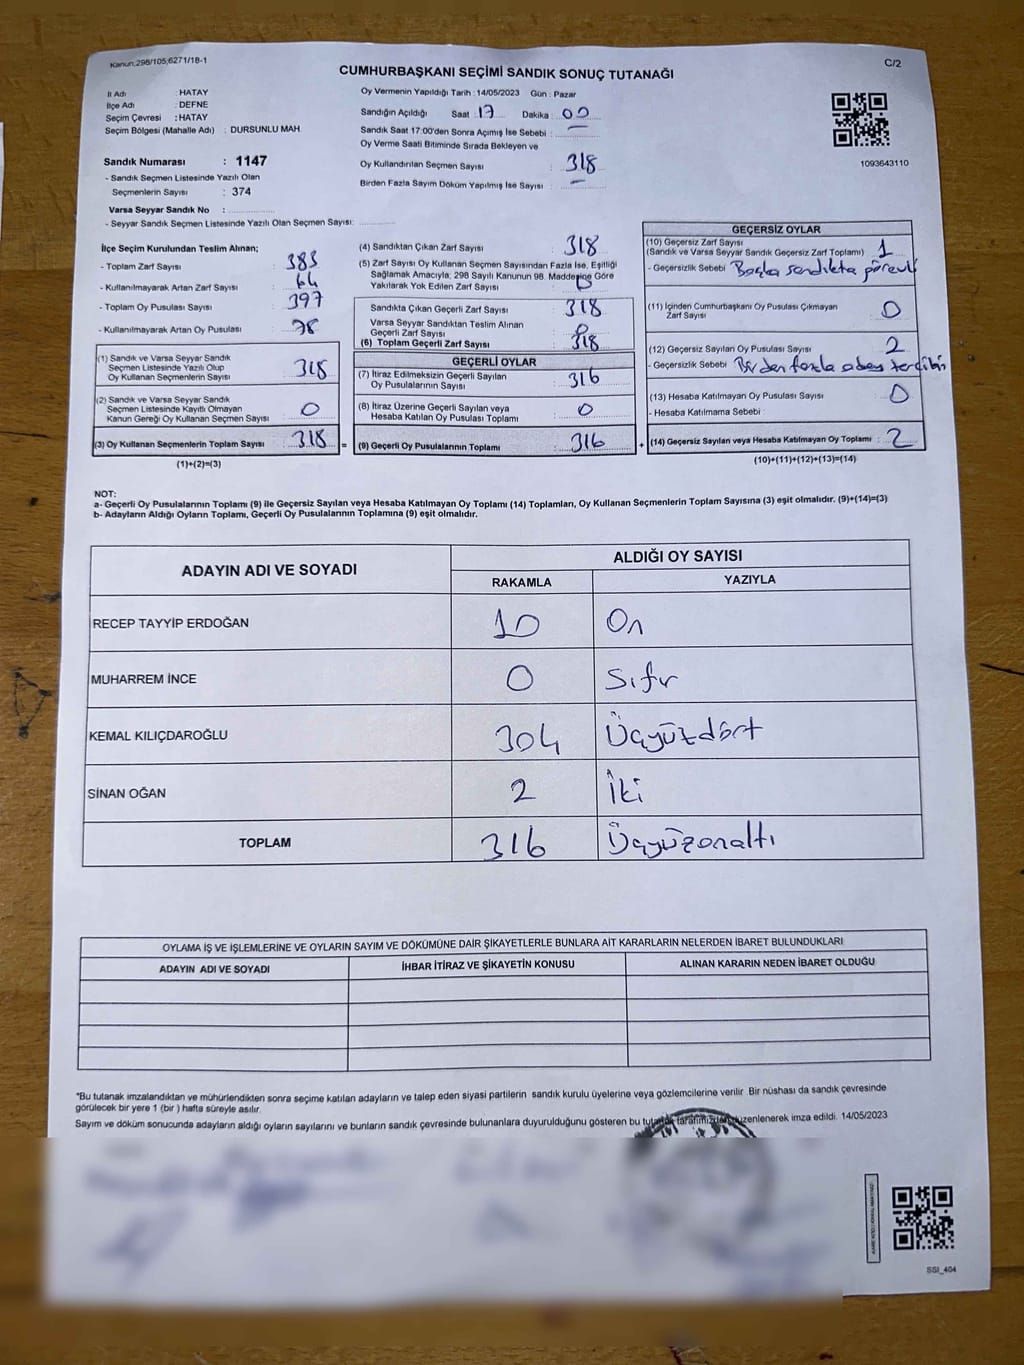 Kanun.298/105;6271/18-1
C/2
CUMHURBAŞKANI SEÇİMİ SANDIK SONUÇ TUTANAĞI
İl Adı : HATAY
İlçe Adı : DEFNE
Seçim Çevresi : HATAY
Seçim Bölgesi (Mahalle Adı) : DURSUNLU MAH.
Sandık Numarası : 1147
- Sandık Seçmen Listesinde Yazılı Olan
Seçmenlerin Sayısı : 374
Varsa Seyyar Sandık No :
- Seyyar Sandık Seçmen Listesinde Yazılı Olan Seçmen Sayısı:
Oy Vermenin Yapıldığı Tarih : 14/05/2023 Gün : Pazar
Sandığın Açıldığı Saat : 17 Dakika : 00
Sandık Saat 17:00'den Sonra Açımış İse Sebebi : —
Oy Verme Saati Bitiminde Sırada Bekleyen ve
Oy Kullandırılan Seçmen Sayısı : 318
Birden Fazla Sayım Döküm Yapılmış İse Sayısı : —
1093643110
İlçe Seçim Kurulundan Teslim Alınan;
- Toplam Zarf Sayısı : 383
- Kullanılmayarak Artan Zarf Sayısı : 64
- Toplam Oy Pusulası Sayısı : 397
- Kullanılmayarak Artan Oy Pusulası : 78
(1) Sandık ve Varsa Seyyar Sandık
Seçmen Listesinde Yazılı Olup
Oy Kullanan Seçmenlerin Sayısı : 318
(2) Sandık ve Varsa Seyyar Sandık
Seçmen Listesinde Kayıtlı Olmayan
Kanun Gereği Oy Kullanan Seçmen Sayısı : 0
(3) Oy Kullanan Seçmenlerin Toplam Sayısı : 318 =
(1)+(2)=(3)
(4) Sandıktan Çıkan Zarf Sayısı : 318
(5) Zarf Sayısı Oy Kullanan Seçmen Sayısından Fazla İse, Eşitliği
Sağlamak Amacıyla; 298 Sayılı Kanunun 98. Maddesine Göre
Yakılarak Yok Edilen Zarf Sayısı : 0
Sandıkta Çıkan Geçerli Zarf Sayısı : 318
Varsa Seyyar Sandıktan Teslim Alınan
Geçerli Zarf Sayısı : 0
(6) Toplam Geçerli Zarf Sayısı : 318
GEÇERLİ OYLAR
(7) İtiraz Edilmeksizin Geçerli Sayılan
Oy Pusulalarının Sayısı : 316
(8) İtiraz Üzerine Geçerli Sayılan veya
Hesaba Katılan Oy Pusulası Toplamı : 0
(9) Geçerli Oy Pusulalarının Toplamı : 316 +
GEÇERSİZ OYLAR
(10) Geçersiz Zarf Sayısı
(Sandık ve Varsa Seyyar Sandık Geçersiz Zarf Toplamı) : 1
- Geçersizlik Sebebi : Başka sandıkta görevli
(11) İçinden Cumhurbaşkanı Oy Pusulası Çıkmayan
Zarf Sayısı : 0
(12) Geçersiz Sayılan Oy Pusulası Sayısı : 2
- Geçersizlik Sebebi : Birden fazla aday tercihin
(13) Hesaba Katılmayan Oy Pusulası Sayısı : 0
- Hesaba Katılmama Sebebi :
(14) Geçersiz Sayılan veya Hesaba Katılmayan Oy Toplamı : 2
(10)+(11)+(12)+(13)=(14)
NOT:
a- Geçerli Oy Pusulalarının Toplamı (9) ile Geçersiz Sayılan veya Hesaba Katılmayan Oy Toplamı (14) Toplamları, Oy Kullanan Seçmenlerin Toplam Sayısına (3) eşit olmalıdır. (9)+(14)=(3)
b- Adayların Aldığı Oyların Toplamı, Geçerli Oy Pusulalarının Toplamına (9) eşit olmalıdır.
ADAYIN ADI VE SOYADI
ALDIĞI OY SAYISI
RAKAMLA YAZIYLA
RECEP TAYYİP ERDOĞAN 10 On
MUHARREM İNCE 0 Sıfır
KEMAL KILIÇDAROĞLU 304 Üçyüzdört
SİNAN OĞAN 2 İki
TOPLAM 316 Üçyüzonaltı
OYLAMA İŞ VE İŞLEMLERİNE VE OYLARIN SAYIM VE DÖKÜMÜNE DAİR ŞİKAYETLERLE BUNLARA AİT KARARLARIN NELERDEN İBARET BULUNDUKLARI
ADAYIN ADI VE SOYADI İHBAR İTİRAZ VE ŞİKAYETİN KONUSU ALINAN KARARIN NEDEN İBARET OLDUĞU
*Bu tutanak imzalandıktan ve mühürlendikten sonra seçime katılan adayların ve talep eden siyasi partilerin sandık kurulu üyelerine veya gözlemcilerine verilir Bir nüshası da sandık çevresinde
görülecek bir yere 1 (bir ) hafta süreyle asılır.
Sayım ve döküm sonucunda adayların aldığı oyların sayılarını ve bunların sandık çevresinde bulunanlara duyurulduğunu gösteren bu tutanak tarafımızdan düzenlenerek imza edildi. 14/05/2023
SSI_404